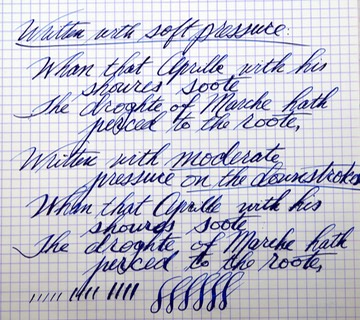 Written with soft pressure:
Whan that Aprille with his
shoures soote
The droghte of Marche hath
perced to the roote,
Written with moderate
pressure on the downstroke
Whan that Aprille with his
shoures soote
The droghte of Marche hath
perced to the roote,